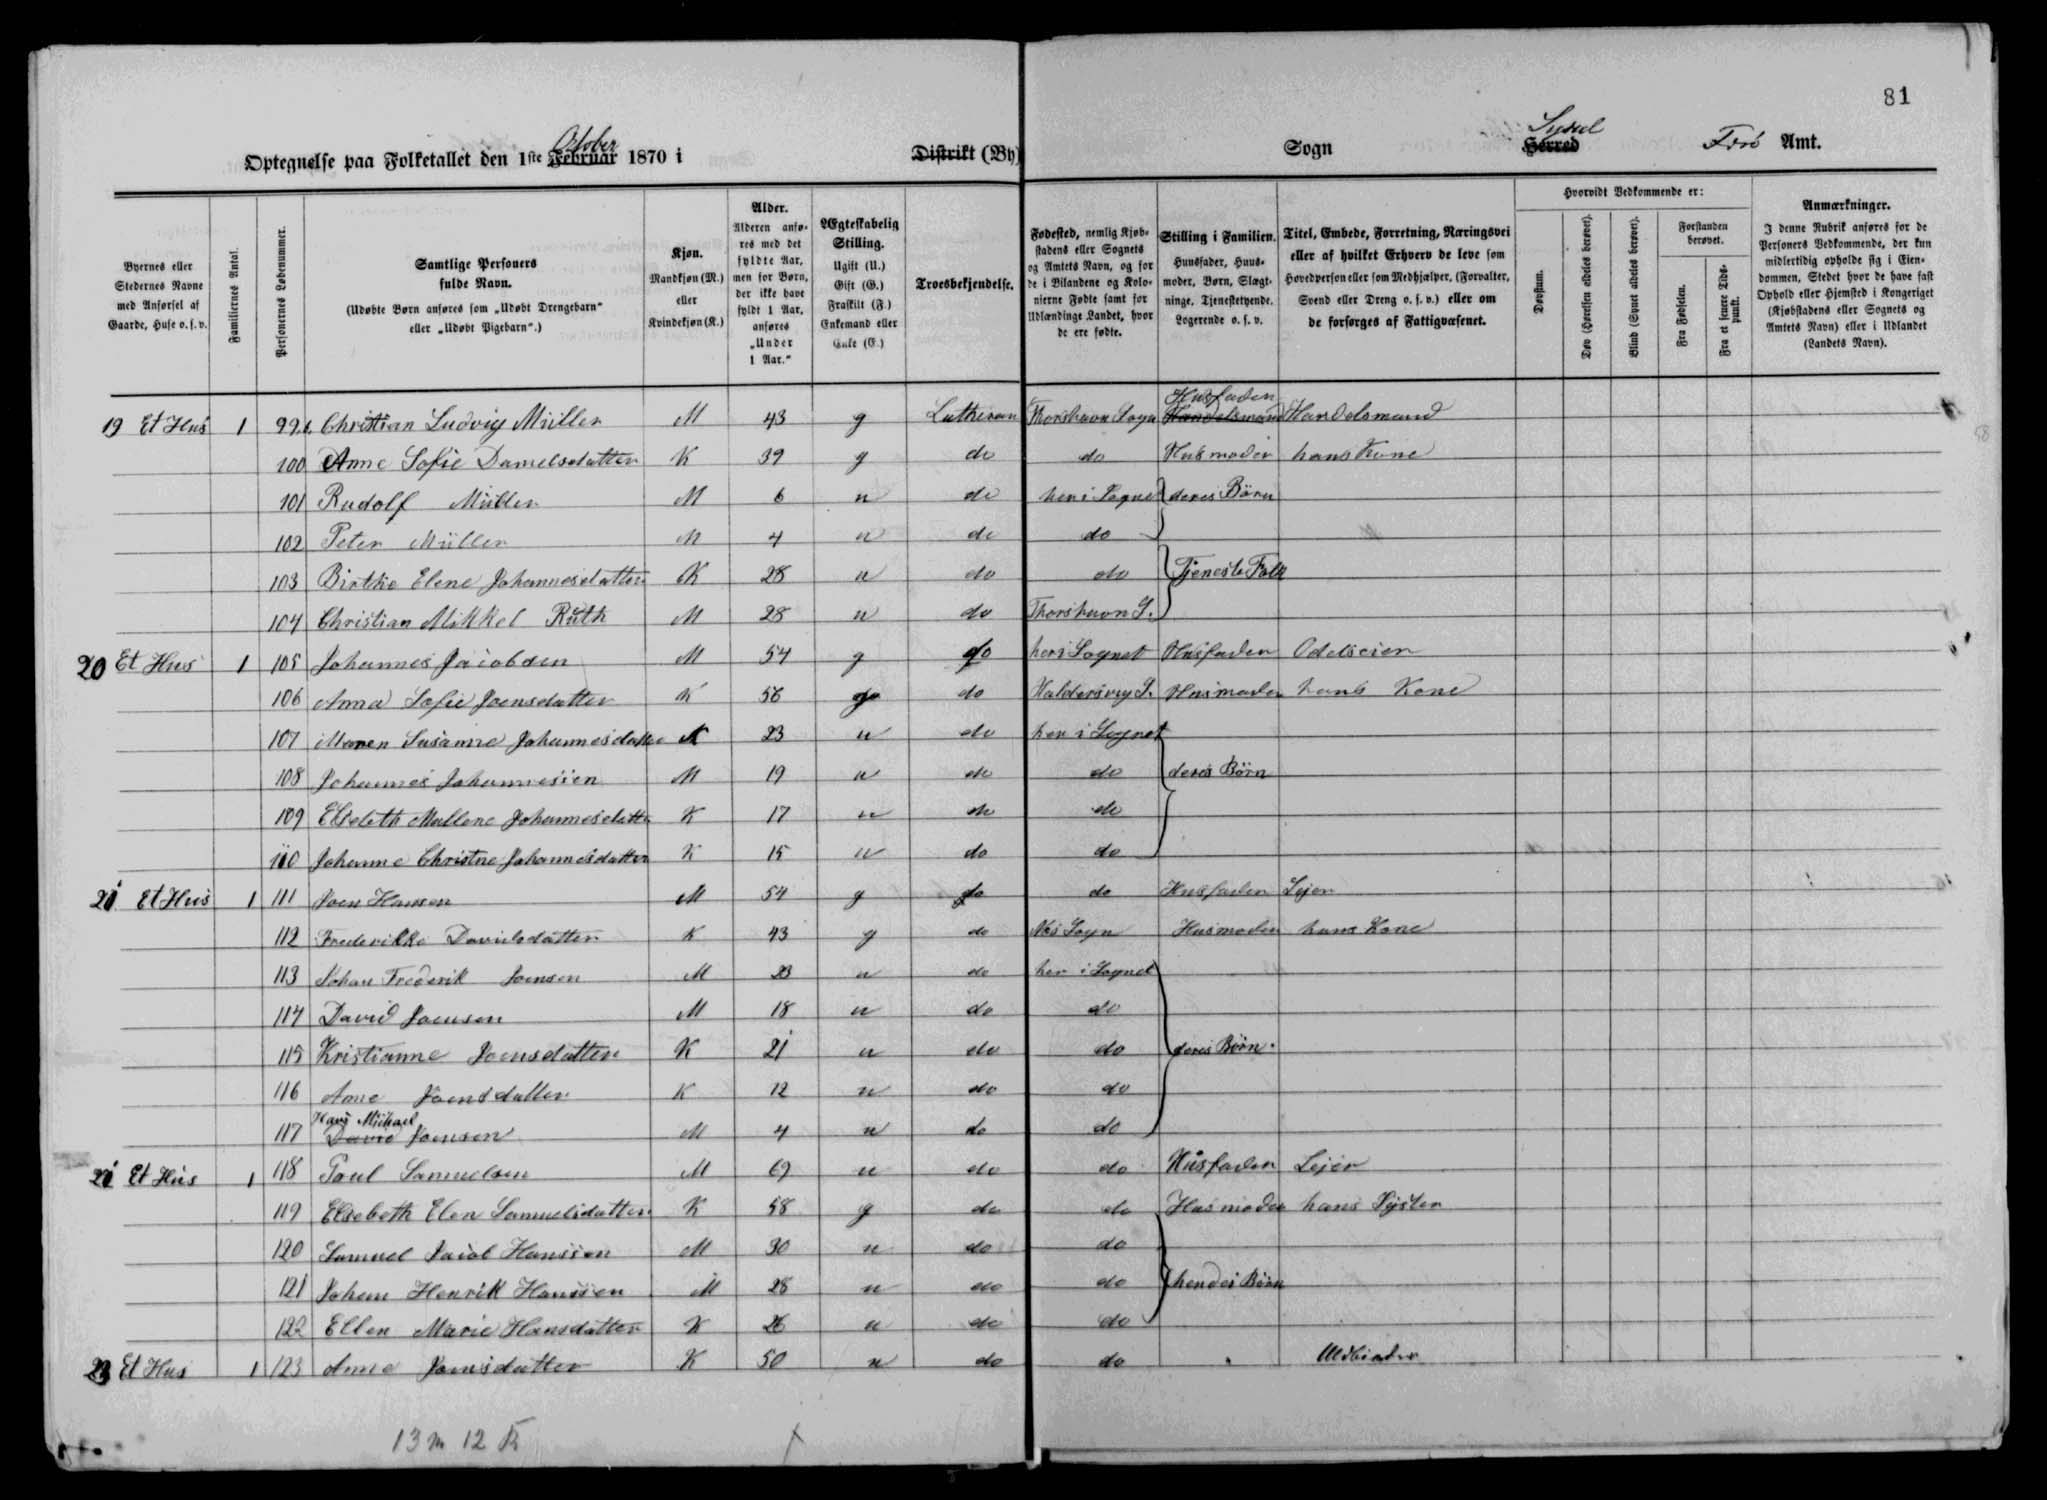 81
Optegnelse paa Folketallet den 1ste Februar October 1870 i Distrikt (By) Sogn Herred Syssel Færø Amt.
Byernes eller Stedernes Navne med Anførsel af Gaarde, Huse o. s. v.
Familiernes Antal.
Personernes Løbenummer.
Samtlige Personers fulde Navn.
(Udøbte Børn anføres som „Udøbt Drengebarn“ eller „Udøbt Pigebarn“.)
Kjøn.
Mandkjøn (M.) eller Kvindekjøn (K.)
Alder.
Alderen anføres med det fyldte Aar, men for Børn, der ikke have fyldt 1 Aar, anføres „Under 1 Aar.“
Ægteskabelig Stilling.
Ugift (U.) Gift (G.) Fraskilt (F.) Enkemand eller Enke (E.)
Troesbekjendelse.
Fødested, nemlig Kjøbstadens eller Sognets og Amtets Navn, og for de i Bilandene og Kolonierne Fødte samt for Udlændinge Landet, hvor de ere fødte.
Stilling i Familien.
Huusfader, Huusmoder, Børn, Slægtninge, Tjenestetyende, Logerende o. s. v.
Titel, Embede, Forretning, Næringsvei eller af hvilket Erhverv de leve som Hovedperson eller som Medhjælper, (Forvalter, Svend eller Dreng o. s. v.) eller om de forsørges af Fattigvæsenet.
Hvorvidt Vedkommende er:
Døvstum.
Døv (Hørelsen aldeles berøvet).
Blind (Synet aldeles berøvet).
Forstanden berøvet.
Fra Fødselen.
Fra et senere Tidspunkt.
Anmærkninger.
I denne Rubrik anføres for de Personers Vedkommende, der kun midlertidig opholde sig i Eiendommen, Stedet hvor de have fast Ophold eller Hjemsted i Kongeriget (Kjøbstadens eller Sognets og Amtets Navn) eller i Udlandet (Landets Navn).
19 Et Hus 1 99 Christian Ludvig Müller M 43 g Lutheran Thorshavn Sogn Handelsmand Husfader Handelsmand
100 Anne Sofie Danielsdatter K 39 g do do Husmoder hans Kone
101 Rudolf Müller M 6 u do her i Sognet deres Børn
102 Peter Müller M 4 u do do
103 Birthe Elene Johannesdatter K 28 u do do Tjeneste Folk
104 Christian Mikkel Ruth M 28 u do Thorshavn S.
20 Et Hus 1 105 Johannes Jacobsen M 54 g do her i Sognet Husfader Odelseier
106 Anna Sofie Joensdatter K 56 g do Haldersvig S. Husmoder hans Kone
107 Maren Susanne Johannesdatter K 23 u do her i Sognet
108 Johannes Johannessen M 19 u do do deres Børn
109 Elsebeth Mallene Johannesdatter K 17 u do do
110 Johanne Christne Johannesdatter K 15 u do do
21 Et Hus 1 111 Joen Hansen M 54 g do do Husfader Lejer
112 Frederikke Davidsdatter K 43 g do Nes Sogn Husmoder hans Kone
113 Johan Frederik Joensen M 23 u do her i Sognet
114 David Joensen M 18 u do do
115 Kristianne Joensdatter K 21 u do do deres Børn.
116 Anne Joensdatter K 12 u do do
Hans Michael
117 David Joensen M 4 u do do
21 Et Hus 1 118 Poul Samuelsen M 69 u do do Husfader Lejer
119 Elsebeth Elen Samuelsdatter K 58 g do do Husmoder hans Syster
120 Samuel Jacob Hanssen M 30 u do do
121 Johan Henrik Hanssen M 28 u do do hendes Børn
122 Ellen Marie Hansdatter K 26 u do do
23 Et Hus 1 123 Anne Joensdatter K 50 u do do
13 m 12 K